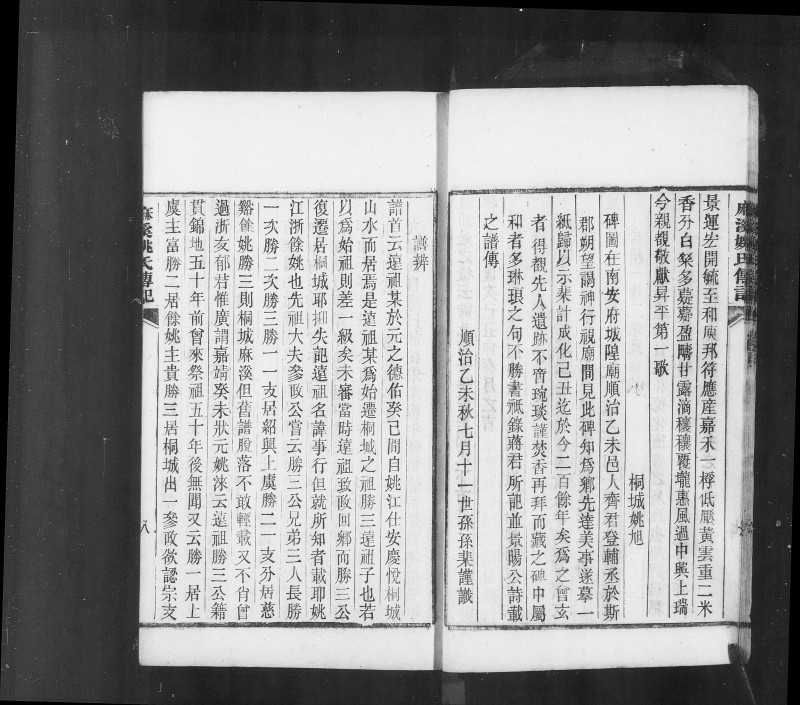 麻溪姚氏傳記
景運宏開毓至和庾邦符應産嘉禾一稃低壓黃雲重二米
香分白粲多嘉嘉盈疇甘露滴穰穰覆壠惠風過中興上瑞
今親覩敬獻昇平第一歌
桐城姚旭
碑圖在南安府城隍廟順治乙未邑人齊君登輔丞於斯
郡朔望謁神行視廟間見此碑知爲鄉先達美事遂摹一
紙歸以示棐計成化己丑迄於今二百餘年矣爲之曾玄
者得覩先人遺跡不啻琬琰謹焚香再拜而藏之碑中屬
和者多琳琅之句不勝書祗錄蔣君所記並景暘公詩載
之譜傳
順治乙未秋七月十一世孫孫棐謹識
譜辨
譜首云遠祖某於元之德佑癸己間自姚江仕安慶悅桐城
山水而居焉是遠祖某爲始遷桐城之祖勝三遠祖子也若
以爲始祖則差一級矣未審當時遠祖致政回鄉而勝三公
復遷居桐城耶抑失記遠祖名諱事行但就所知者載耶姚
江浙餘姚也先祖大夫參政公嘗云勝三公兄弟三人長勝
一次勝二次勝三勝一一支居紹興上虞勝二一支分居慈
谿餘姚勝三則桐城麻溪但舊譜脫落不敢輕載又不肖曾
過浙友郁君惟廣謂嘉靖癸未狀元姚淶云遠祖勝三公籍
貫錦地五十年前曾來祭祖五十年後無聞又云勝一居上
虞主富勝二居餘姚主貴勝三居桐城出一參政欲認宗支
麻溪姚氏傳記
八